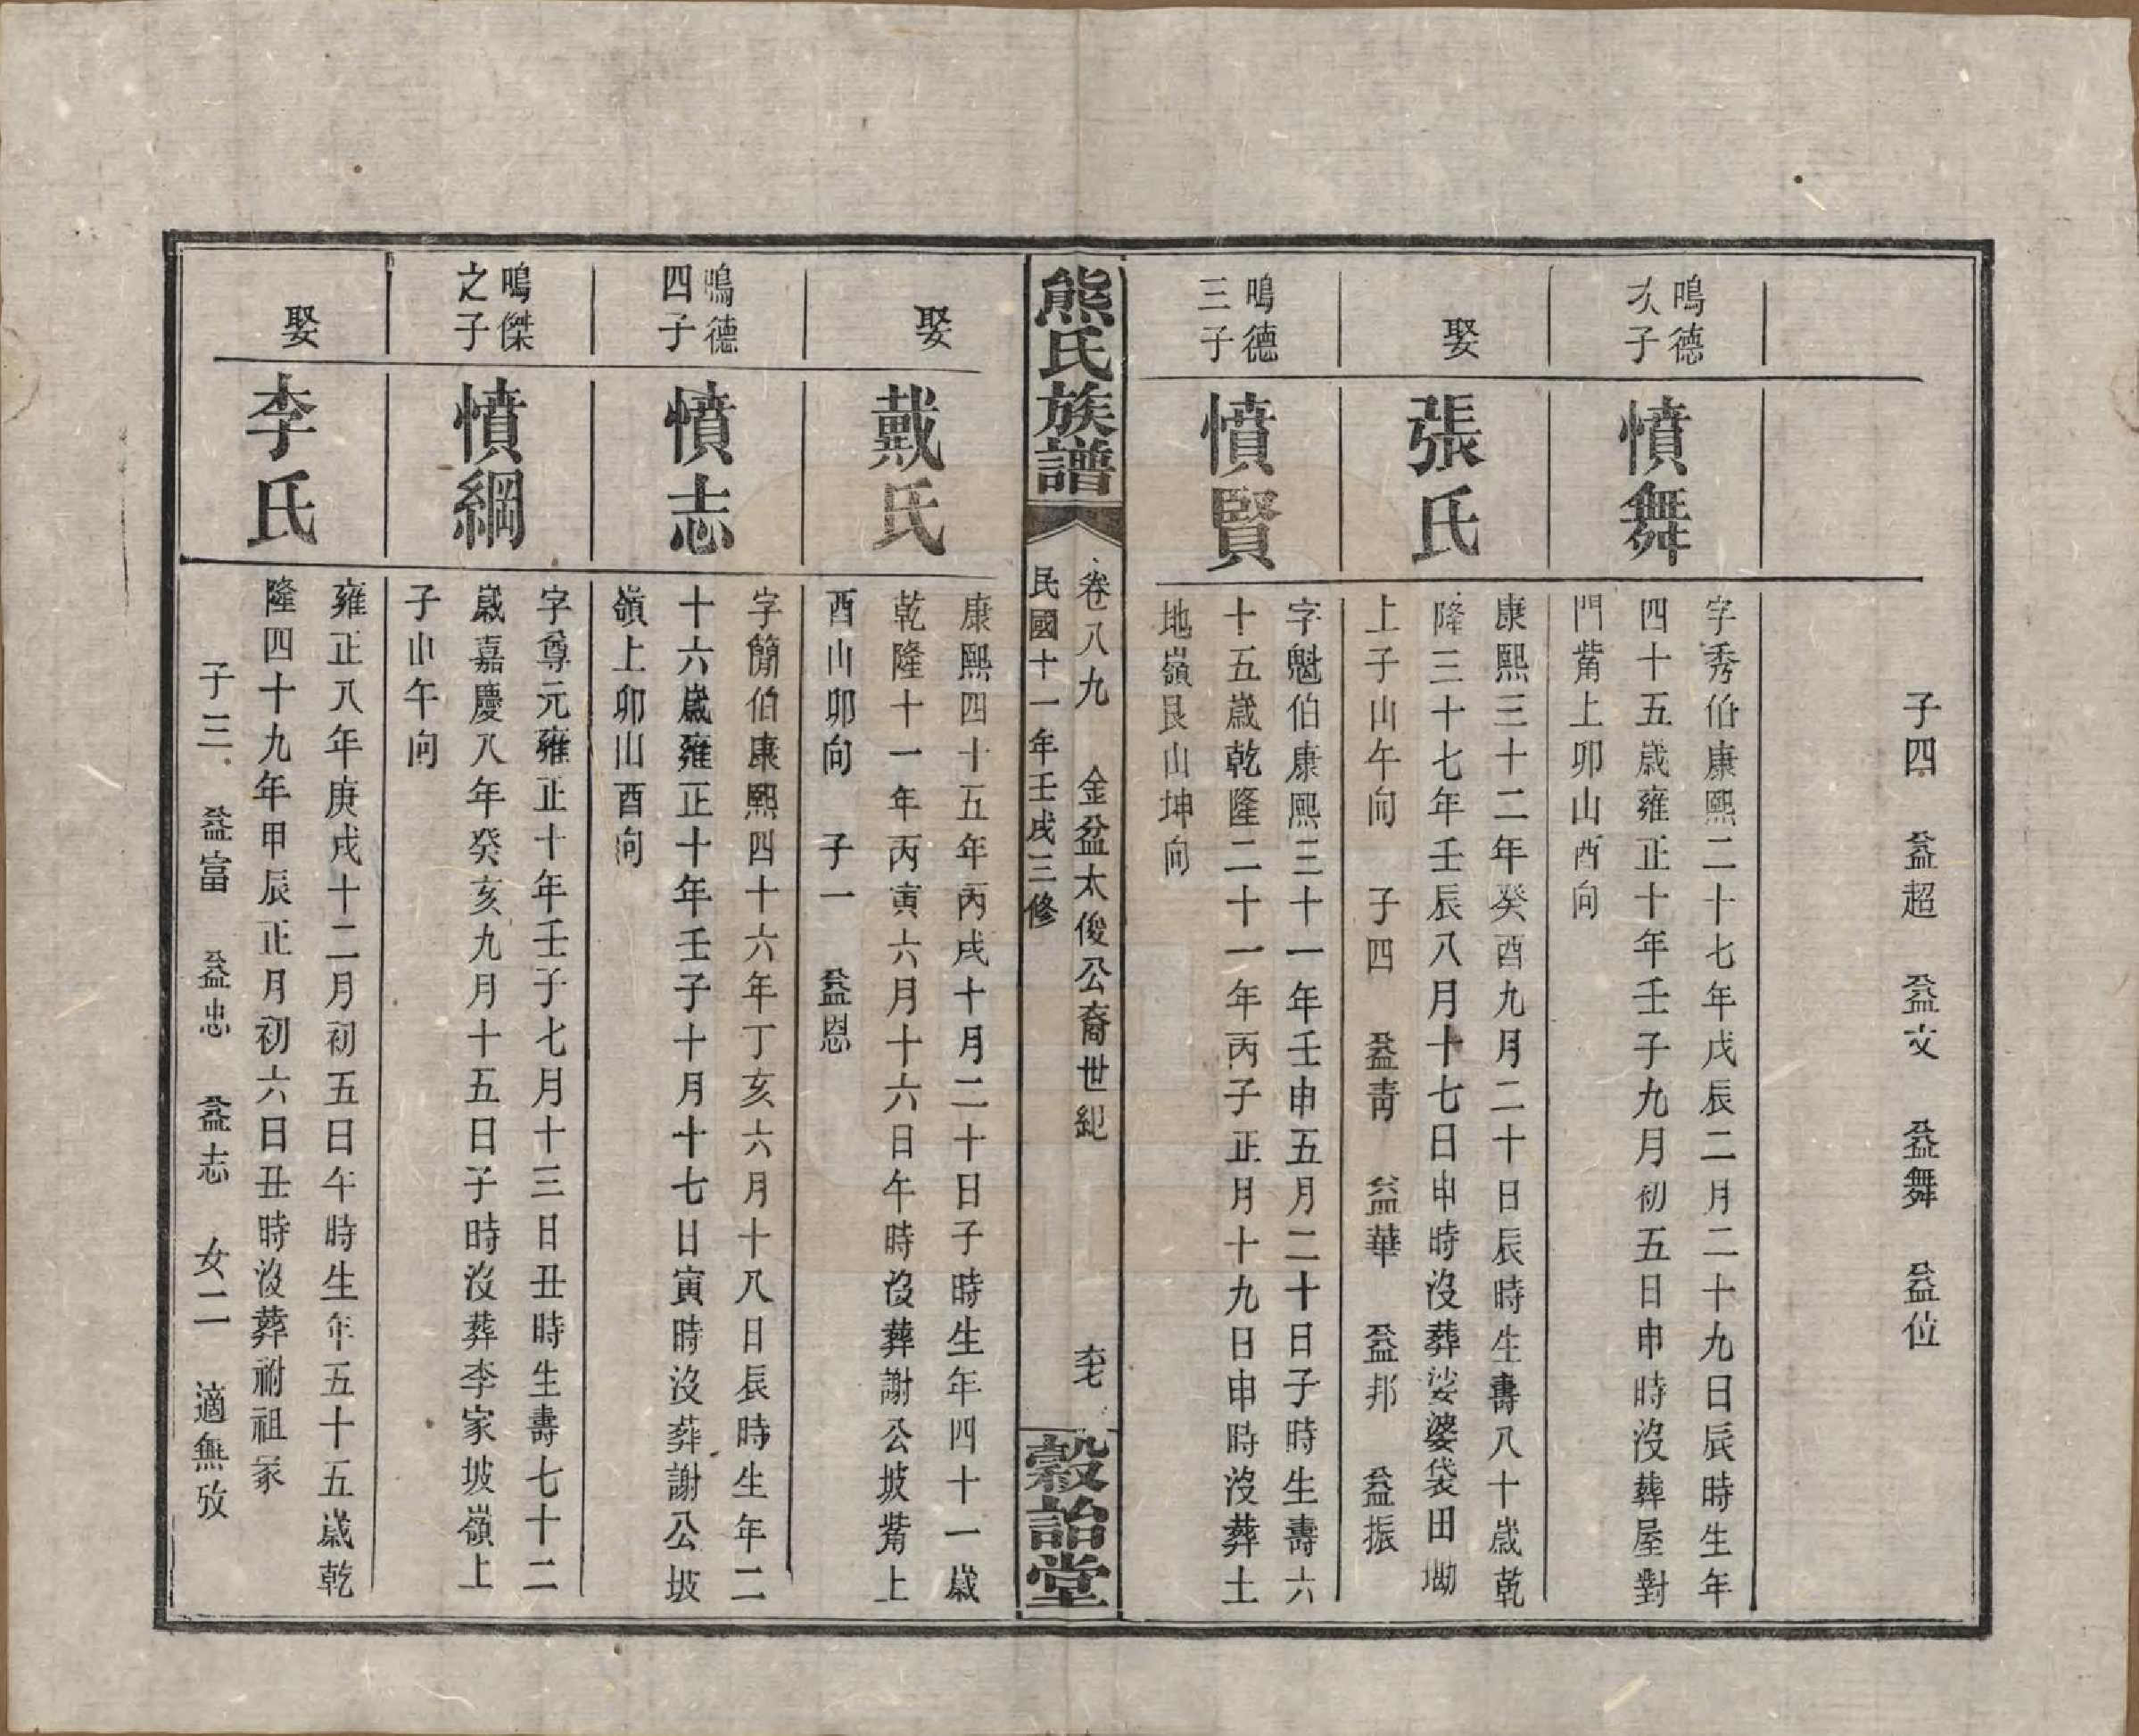 子四　益超　益文　益舞　益位
鳴德
次子
憤舞
字秀伯康熙二十七年戊辰二月二十九日辰時生年
四十五歲雍正十年壬子九月初五日申時沒葬屋對
門觜上卯山酉向
娶
張氏
康熙三十二年癸酉九月二十日辰時生壽八十歲乾
隆三十七年壬辰八月十七日申時沒葬娑婆袋田坳
上子山午向　子四　益青　益華　益邦　益振
鳴德
三子
憤賢
字魁伯康熙三十一年壬申五月二十日子時生壽六
十五歲乾隆二十一年丙子正月十九日申時沒葬土
地嶺艮山坤向
熊氏族譜
卷八九　金盆太俊公裔世紀
民國十一年壬戌三修
榖詒堂
娶
戴氏
康熙四十五年丙戌十月二十日子時生年四十一歲
乾隆十一年丙寅六月十六日午時沒葬謝公坡觜上
酉山卯向　子一　益恩
鳴德
四子
憤志
字簡伯康熙四十六年丁亥六月十八日辰時生年二
十六歲雍正十年壬子十月十七日寅時沒葬謝公坡
嶺上卯山酉向
鳴傑
之子
憤綱
字尊元雍正十年壬子七月十三日丑時生壽七十二
歲嘉慶八年癸亥九月十五日子時沒葬李家坡嶺上
子山午向
娶
李氏
雍正八年庚戌十二月初五日午時生年五十五歲乾
隆四十九年甲辰正月初六日丑時沒葬祔祖冢
子三　益富　益忠　益志　女二　適無攷